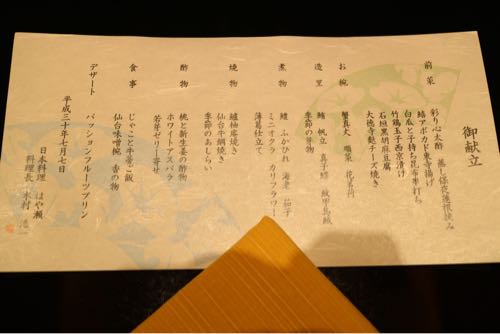 御献立
前菜
彩り心太酢 蒸し保夜蓮根挟み
鮎アボカド東寺揚げ
白瓜と子持ち昆布率打ち
竹鶏玉子西京漬け
石垣黒胡麻豆腐
大徳寺麩チーズ焼き
お椀
蟹真丈 順菜 花茗荷
造里
鮪 帆立 真子鰈 紋甲烏賊
季節の芽物
煮物
鱧 ふかひれ 海老 茄子
ミニオクラ カリフラワー
薄葛仕立て
焼物
鱸柚庵焼き
仙台牛鍋焼き
季節のあしらい
酢物
桃と新生姜の酢物
ホワイトアスパラ
若布ゼリー寄せ
食事
じゃこと牛蒡ご飯
仙台味噌椀 香の物
デザート
パッションフルーツプリン
平成三十年七月七日
日本料理 はや瀬
料理長 木村